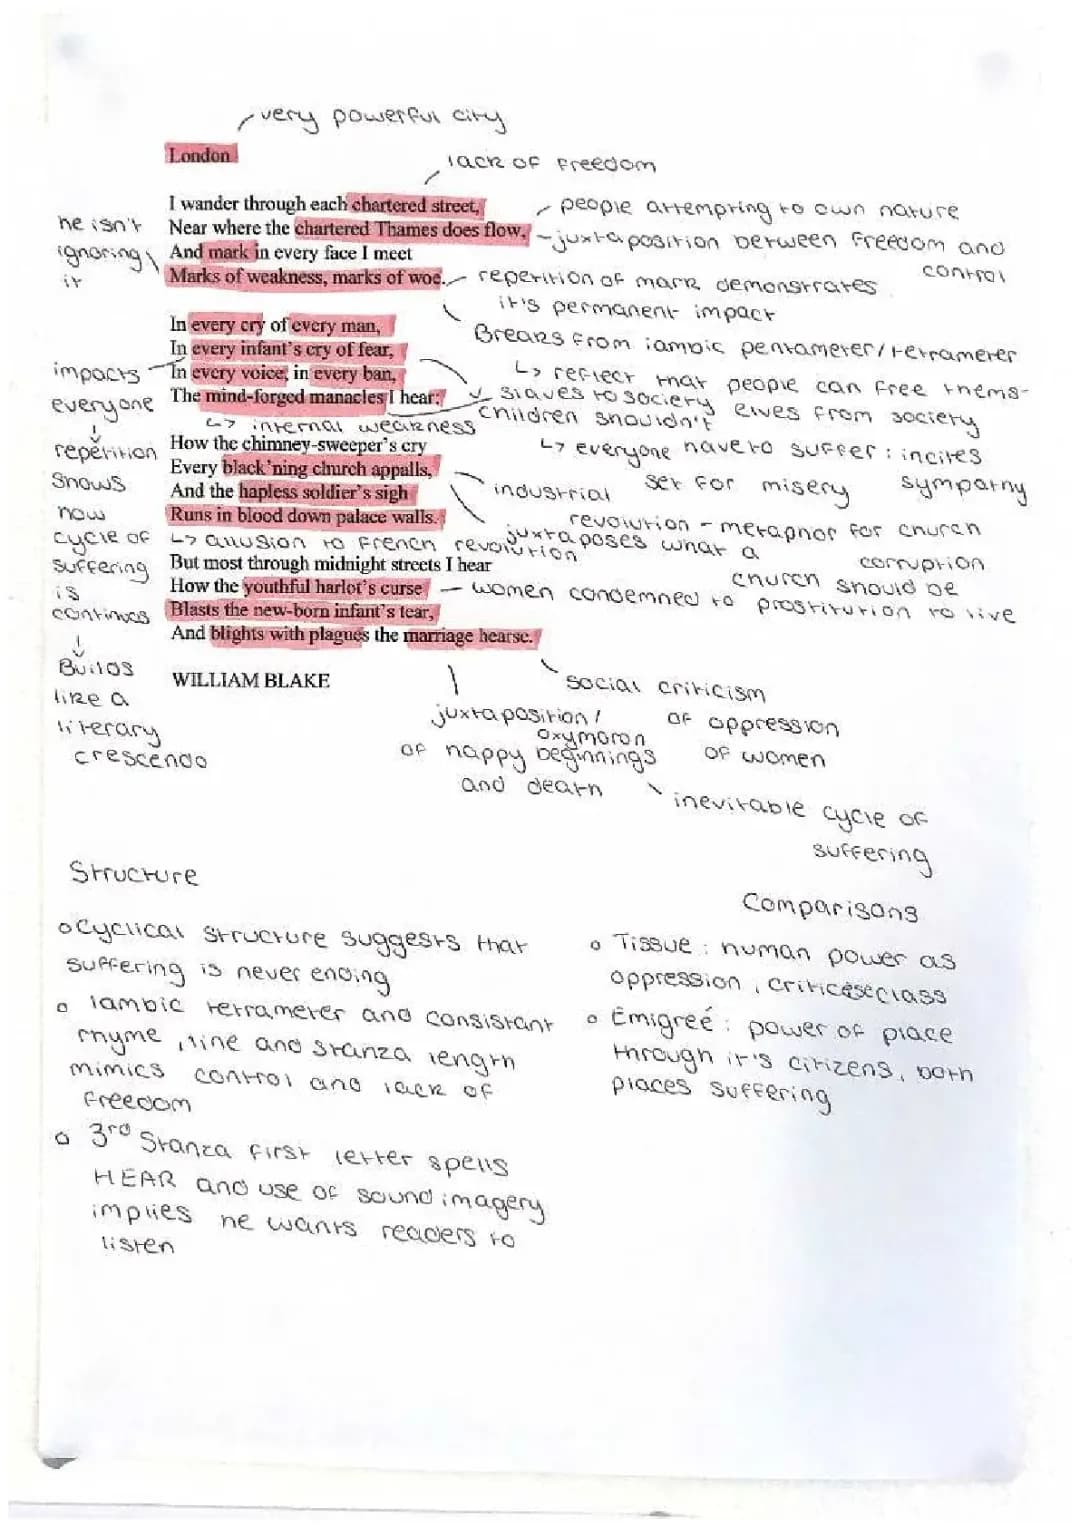 very powerful city
London
lack of freedom
I wander through each chartered street,
people attempting to own nature
he isn't
ignoring
it
Near where the chartered Thames does flow,
juxtaposition between freedom and
control
And mark in every face I meet
Marks of weakness, marks of woe.
repetition of mark demonstrates
it's permanent impact
Breaks from iambic pentameter/tetrameter
↳ reflect that people can free thems-
elves from society
In every cry of every man,
In every infant's cry of fear,
In every voice, in every ban,
The mind-forged manacles I hear:
slaves to society
children shouldn't
have to suffer : incites
sympathy
↳ internal weakness
↳ everyone
set for misery
impacts
everyone
↓
repetition
shows
how
cycle of
suffering
is
continues
↓
Builds
like a
literary
crescendo
How the chimney-sweeper's cry
Every black'ning church appalls,
And the hapless soldier's sigh
Runs in blood down palace walls.
industrial
revolution - metaphor for church
corruption
juxtaposes what a
church should be
↳ allusion to French revolution
But most through midnight streets I hear
How the youthful harlot's curse
women condemned to prostitution to live
Blasts the new-born infant's tear,
And blights with plagues the marriage hearse.
WILLIAM BLAKE
social criticism
of oppression
of women
juxtaposition/
oxymoron
of happy beginnings
and death
inevitable cycle of
suffering
Structure
o Cyclical structure suggests that
suffering is never ending
o Iambic tetrameter and consistant
rhyme, line and stanza length
mimics control and lack of
freedom
o 3rd Stanza first letter spells
HEAR and use of sound imagery
implies he wants readers to
listen
Comparisons
o Tissue : human power as
oppression, criticese class
o Émigreé : power of place
through it's citizens, both
places suffering